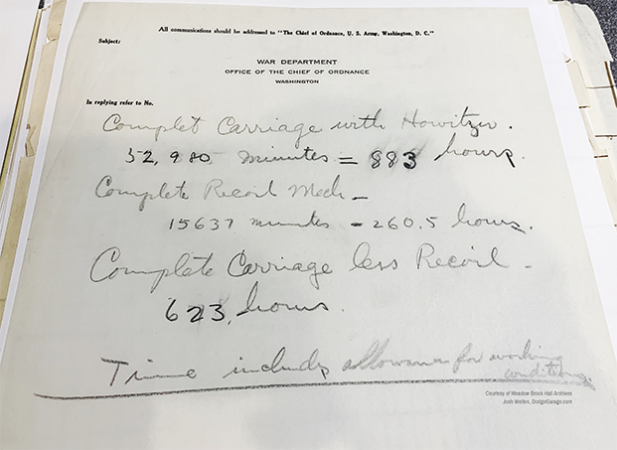 All communications should be addressed to "The Chief of Ordnance, U. S. Army, Washington, D. C."
Subject:
WAR DEPARTMENT
OFFICE OF THE CHIEF OF ORDNANCE
WASHINGTON
In replying refer to No.
Complet Carriage with Howitzer.
52,980 minutes = 883 hours.
Complete Recoil Mech -
15637 minutes - 260.5 hours.
Complete Carriage less Recoil -
623, hours.
Time includes allowance for working
conditions.
Courtesy of Meadow Brook Hall Archives
Josh Welton, DodgeGarage.com